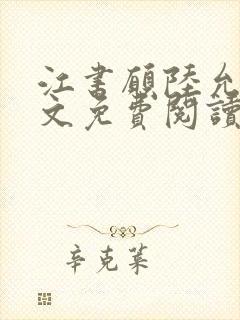 江書顧陸允
文免費閱讀
辛克萊